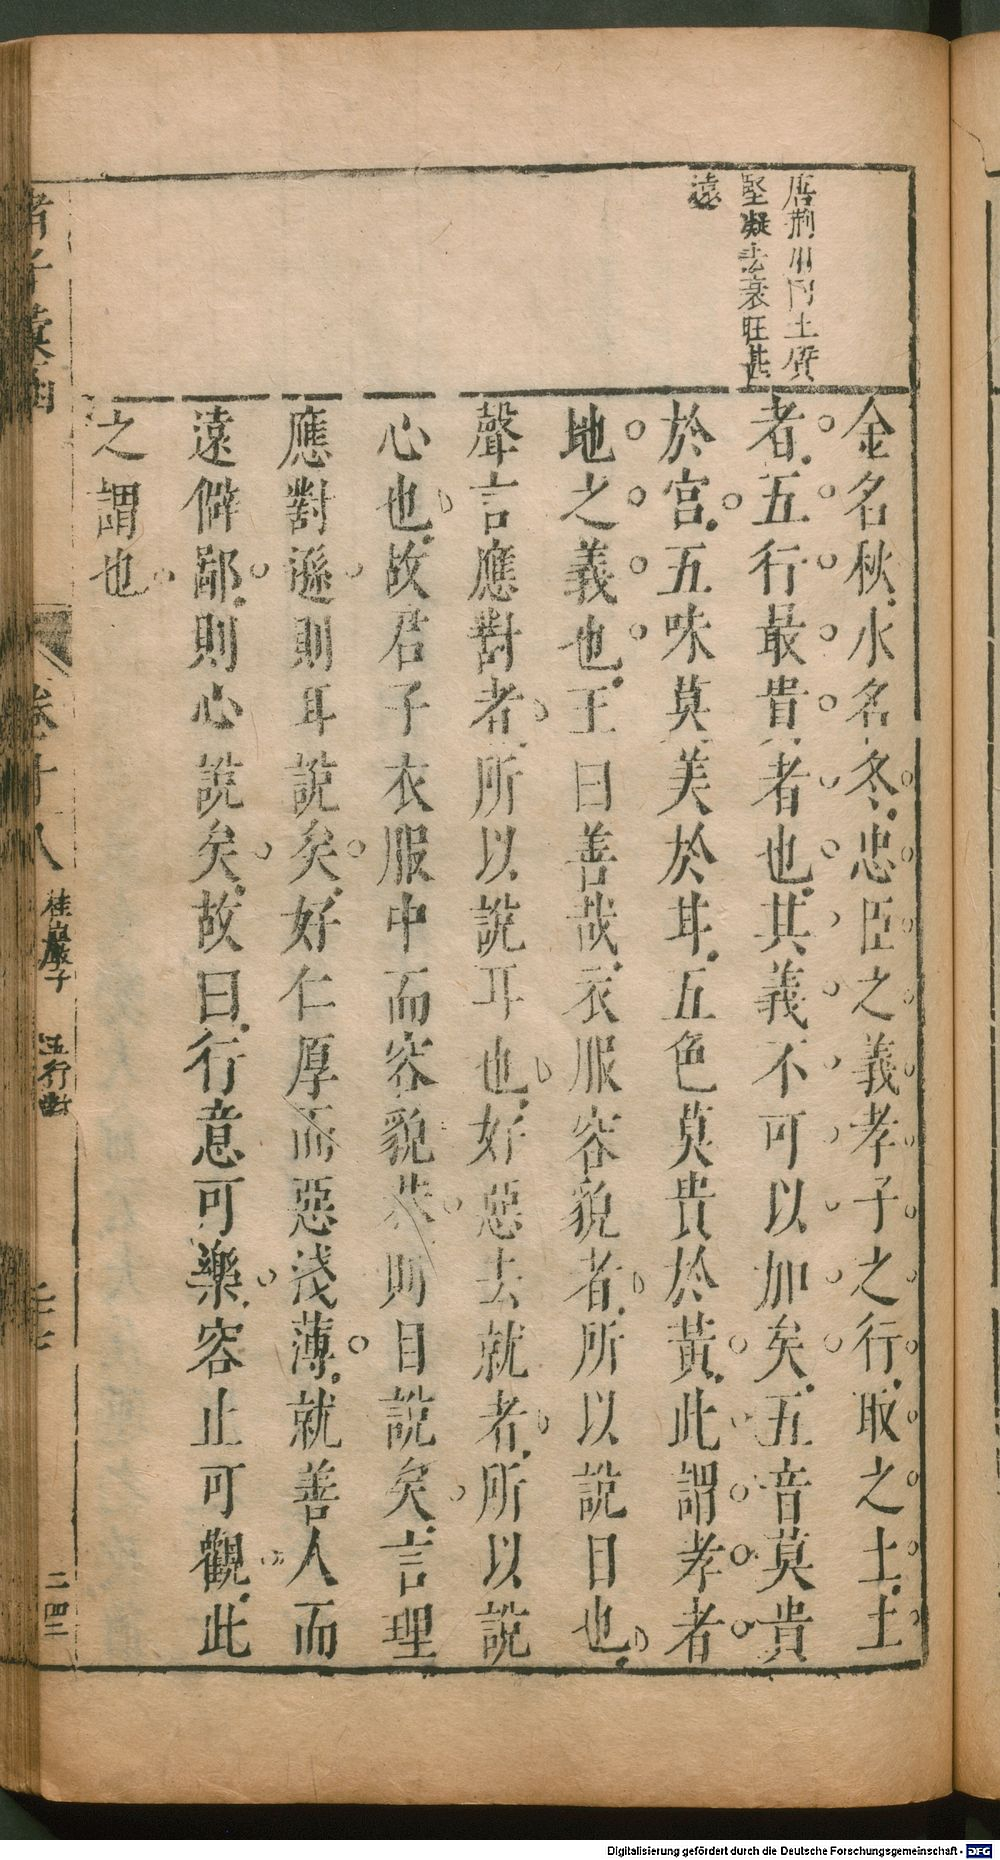 唐荆川曰土廣
堅凝去衰旺甚
遠
金名秋水名冬忠臣之義孝子之行取之土土
者五行最貴者也其義不可以加矣五音莫貴
於宮五味莫美於甘五色莫貴於黃此謂孝者
地之義也王曰善哉衣服容貌者所以說目也
聲言應對者所以說耳也好惡去就者所以說
心也故君子衣服中而容貌恭則目說矣言理
應對遜則耳說矣好仁厚而惡淺薄就善人而
遠僻鄙則心說矣故曰行意可樂容止可觀此
之謂也
諸子彙函
卷十八
桂巖子
五行對
二四二
Digitalisierung gefördert durch die Deutsche Forschungsgemeinschaft - DFG